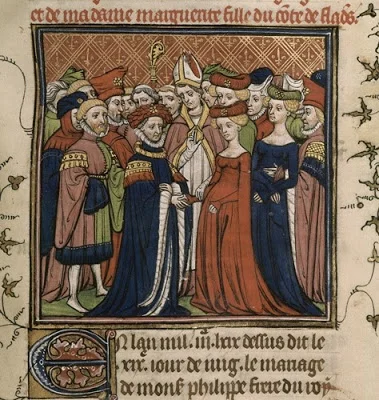 et de ma dame marguerite fille du cõte de flãds.
En lan mil. iij. lxix dessus dit le
xix. iour de iuig. le mariage
de monß philippe frere du roy